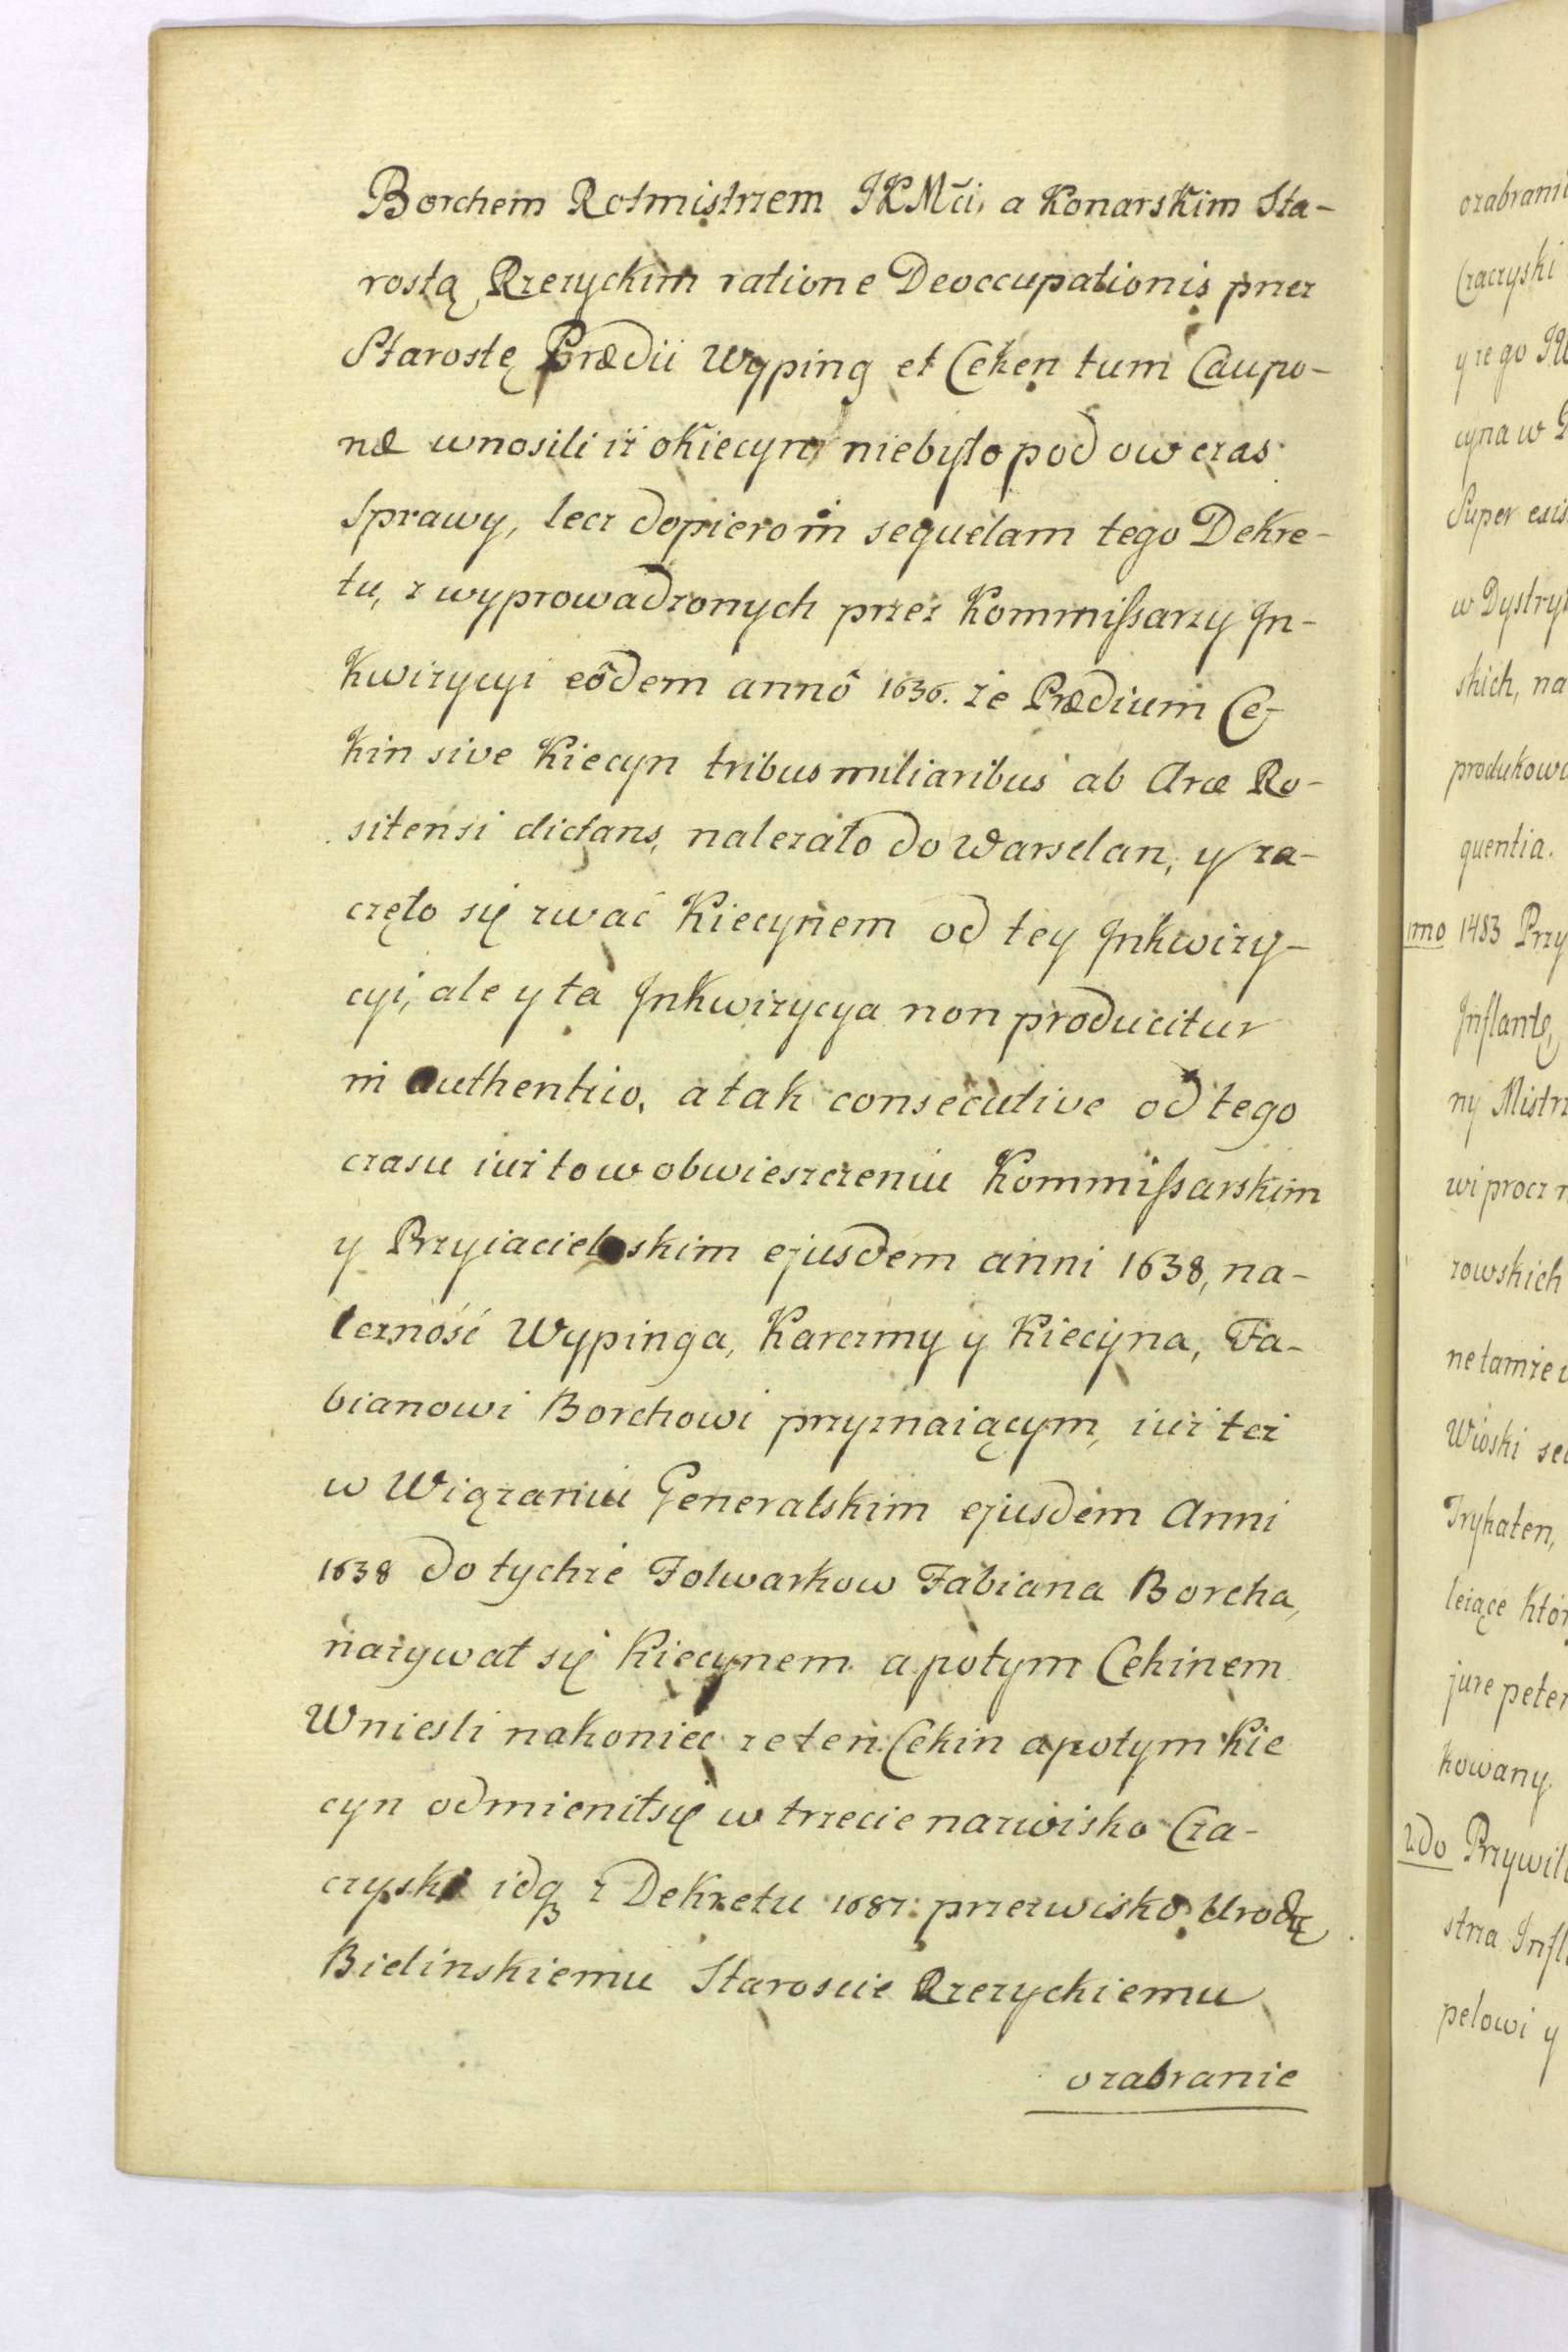 Borchem Rotmistrzem JKMći, a Konarskim Sta-
rostą Rzezyckim ratione Deoccupationis przez
Starostę Prædii Wyping et Ceken tum Caupo-
næ wnosili iż o Kiecyn niebyło pod ow czas
Sprawy, lecz dopiero in sequelam tego Dekre-
tu, z wyprowadzonych przez Kommissarzy In-
kwizycyi eôdem annô 1636. że Prædium Ce-
kin sive Kiecyn tribus miliaribus ab Arce Ro-
sitensi distans, należało do Warselan, y za-
częło się zwać Kiecynem od tey Inkwizy-
cyi, ale y ta Inkwizycya non producitur
in authentico, a tak consecutive od tego
czasu iuż to w obwieszczeniu Kommissarskim
y Przyiacielskim ejusdem anni 1638, na-
leżność Wypinga, Karczmy y Kiecyna, Fa-
bianowi Borchowi przyznaiącym, iuż też
w Wiązaniu Generalskim ejusdem Anni
1638 do tychże Folwarkow Fabiana Borcha,
nazywał się Kiecynem a potym Cekinem
Wniesli nakoniec że ten Cekin a potym Kie
cyn odmienił się w trzecie nazwisko Cza-
czyski idq z Dekretu 1687. przezwisko Urodz
Bielinskiemu Staroscie Rzezyckiemu
o zabranie
ozabranie
Czaczyski
y ze go
cyna w
Super
w Dystry
skich, na
produkowa
quentia.
1mo 1483 Przy
Inflantę,
ny Mistrz
wi procz
zowskich
ne tamże
Wioski
Trykaten,
leżące któr
jure peter
kowany.
2do Przywil
strza Infl
pelowi y